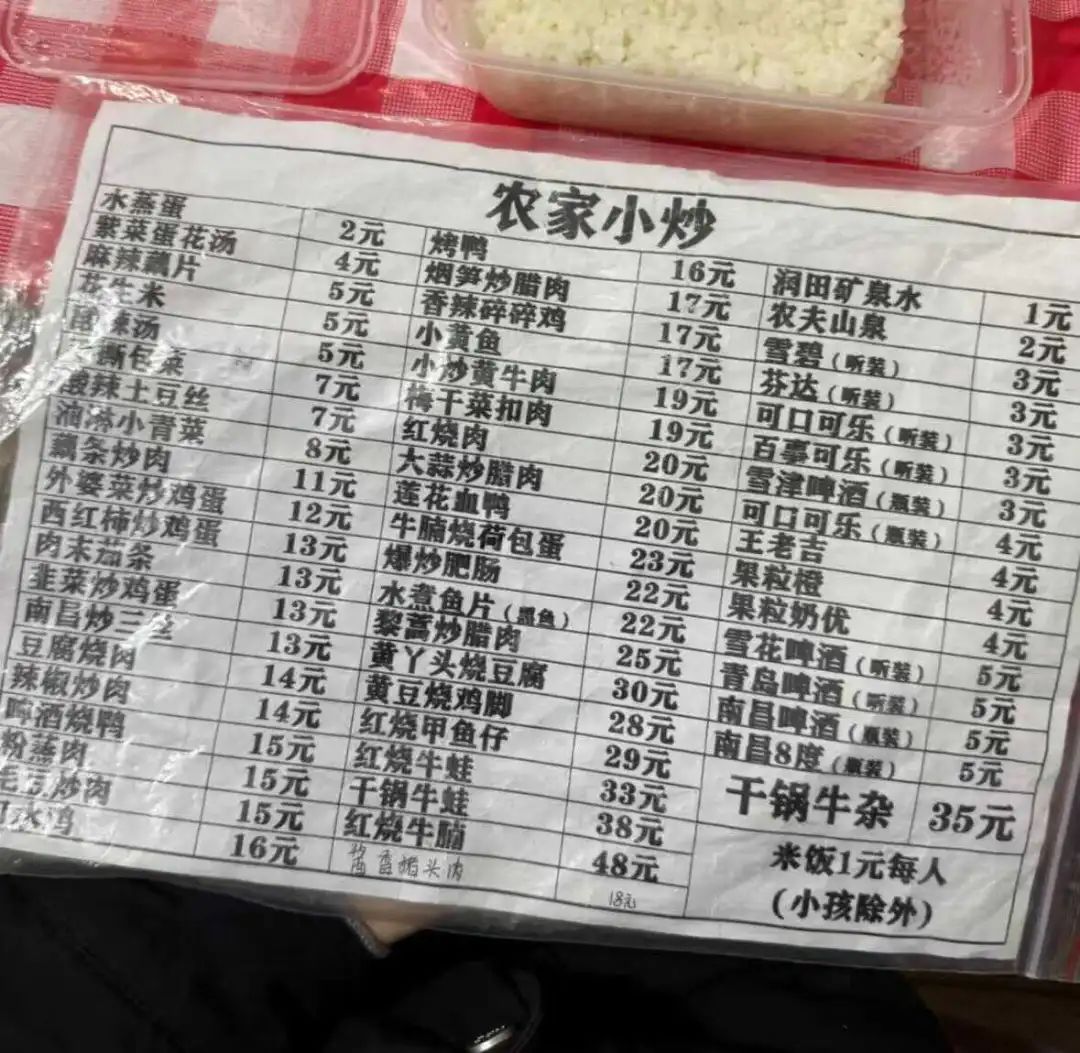 农家小炒
水蒸蛋 2元 烤鸭 16元 润田矿泉水 1元
紫菜蛋花汤 4元 烟笋炒腊肉 17元 农夫山泉 2元
麻辣藕片 5元 香辣碎碎鸡 17元 雪碧（听装） 3元
花生米 5元 小黄鱼 17元 芬达（听装） 3元
酸辣汤 5元 小炒黄牛肉 19元 可口可乐（听装） 3元
撕包菜 7元 梅干菜扣肉 19元 百事可乐（听装） 3元
酸辣土豆丝 7元 红烧肉 20元 雪津啤酒（瓶装） 3元
油淋小青菜 8元 大蒜炒腊肉 20元 可口可乐（瓶装） 4元
藕条炒肉 11元 莲花血鸭 20元 王老吉 4元
外婆菜炒鸡蛋 12元 牛腩烧荷包蛋 23元 果粒橙 4元
西红柿炒鸡蛋 13元 爆炒肥肠 22元 果粒奶优 4元
肉末茄条 13元 水煮鱼片（黑鱼） 22元 雪花啤酒（听装） 5元
韭菜炒鸡蛋 13元 黎蒿炒腊肉 25元 青岛啤酒（听装） 5元
南昌炒三丝 13元 黄丫头烧豆腐 30元 南昌啤酒（瓶装） 5元
豆腐烧肉 14元 黄豆烧鸡脚 28元 南昌8度（瓶装） 5元
辣椒炒肉 14元 红烧甲鱼仔 29元 干锅牛杂 35元
啤酒烧鸭 15元 红烧牛蛙 33元
粉蒸肉 15元 干锅牛蛙 38元 米饭1元每人
毛豆炒肉 15元 红烧牛腩 48元 (小孩除外)
口水鸡 16元 酱香猪头肉 18元